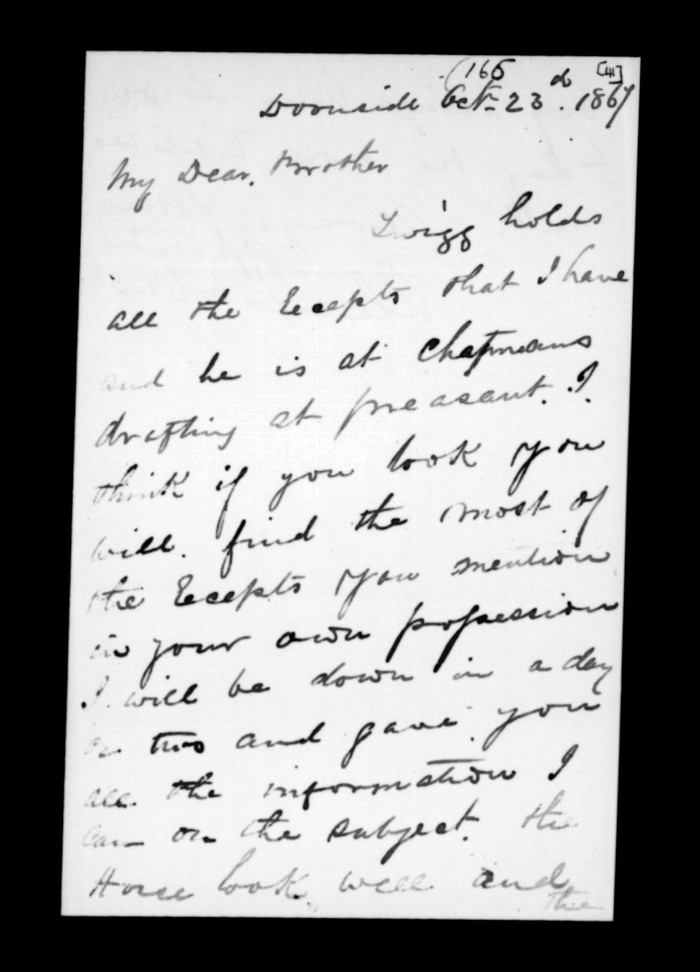 (165 [41]
Doonside Oct 23d. 1867
My Dear. Brother
Twigg holds
all the Recepts that I have
and he is at Chapmans
drafting at preasant. I.
think if you look you
will. find the most of
the Recepts you mention
in your own possession
I will be down in a day
or two and gave you
all the information I
can on the subject. the
Horse look well and
the